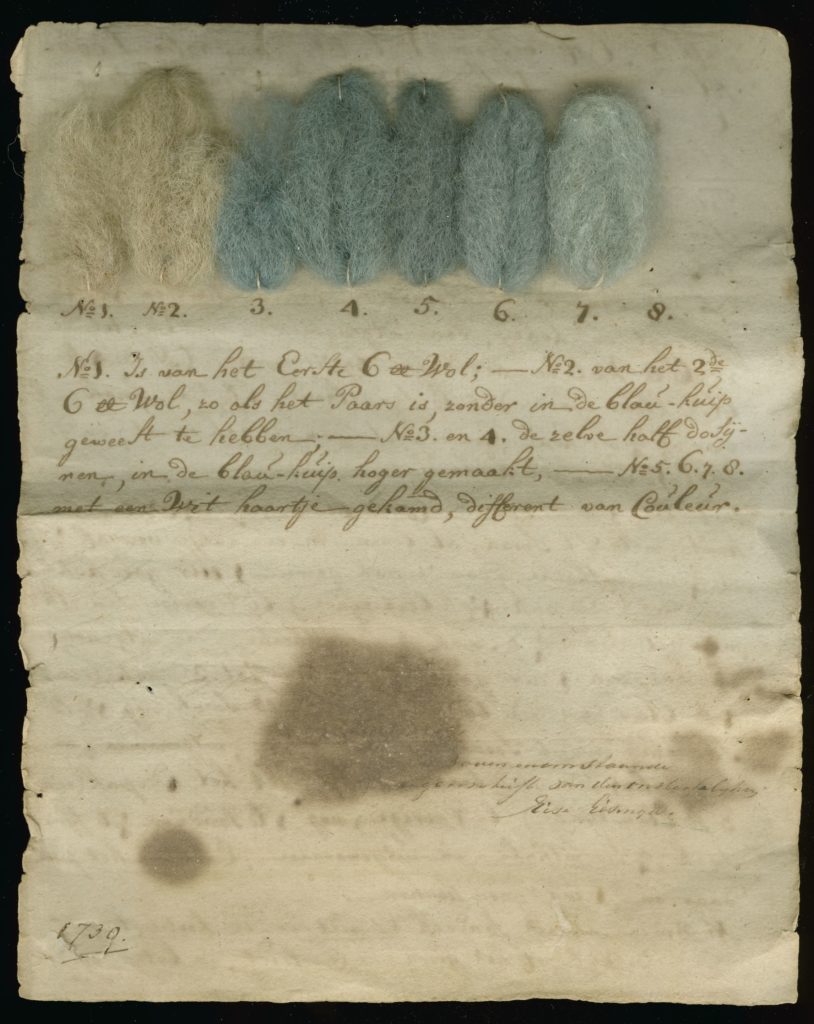 No 1. No 2. 3. 4. 5. 6. 7. 8.
No 1. Is van het Eerste 6 ℔ Wol; — No 2. van het 2de
6 ℔ Wol, zo als het Paars is, zonder in de blaú-kúip
geweest te hebben; — No 3. en 4. de zelve half dosij-
nen, in de blaú-kúip hoger gemaakt, — No 5. 6. 7. 8.
met een Wit haartje gekamd, different van Coúleúr.
van den
Eise Eisinga.
1739.